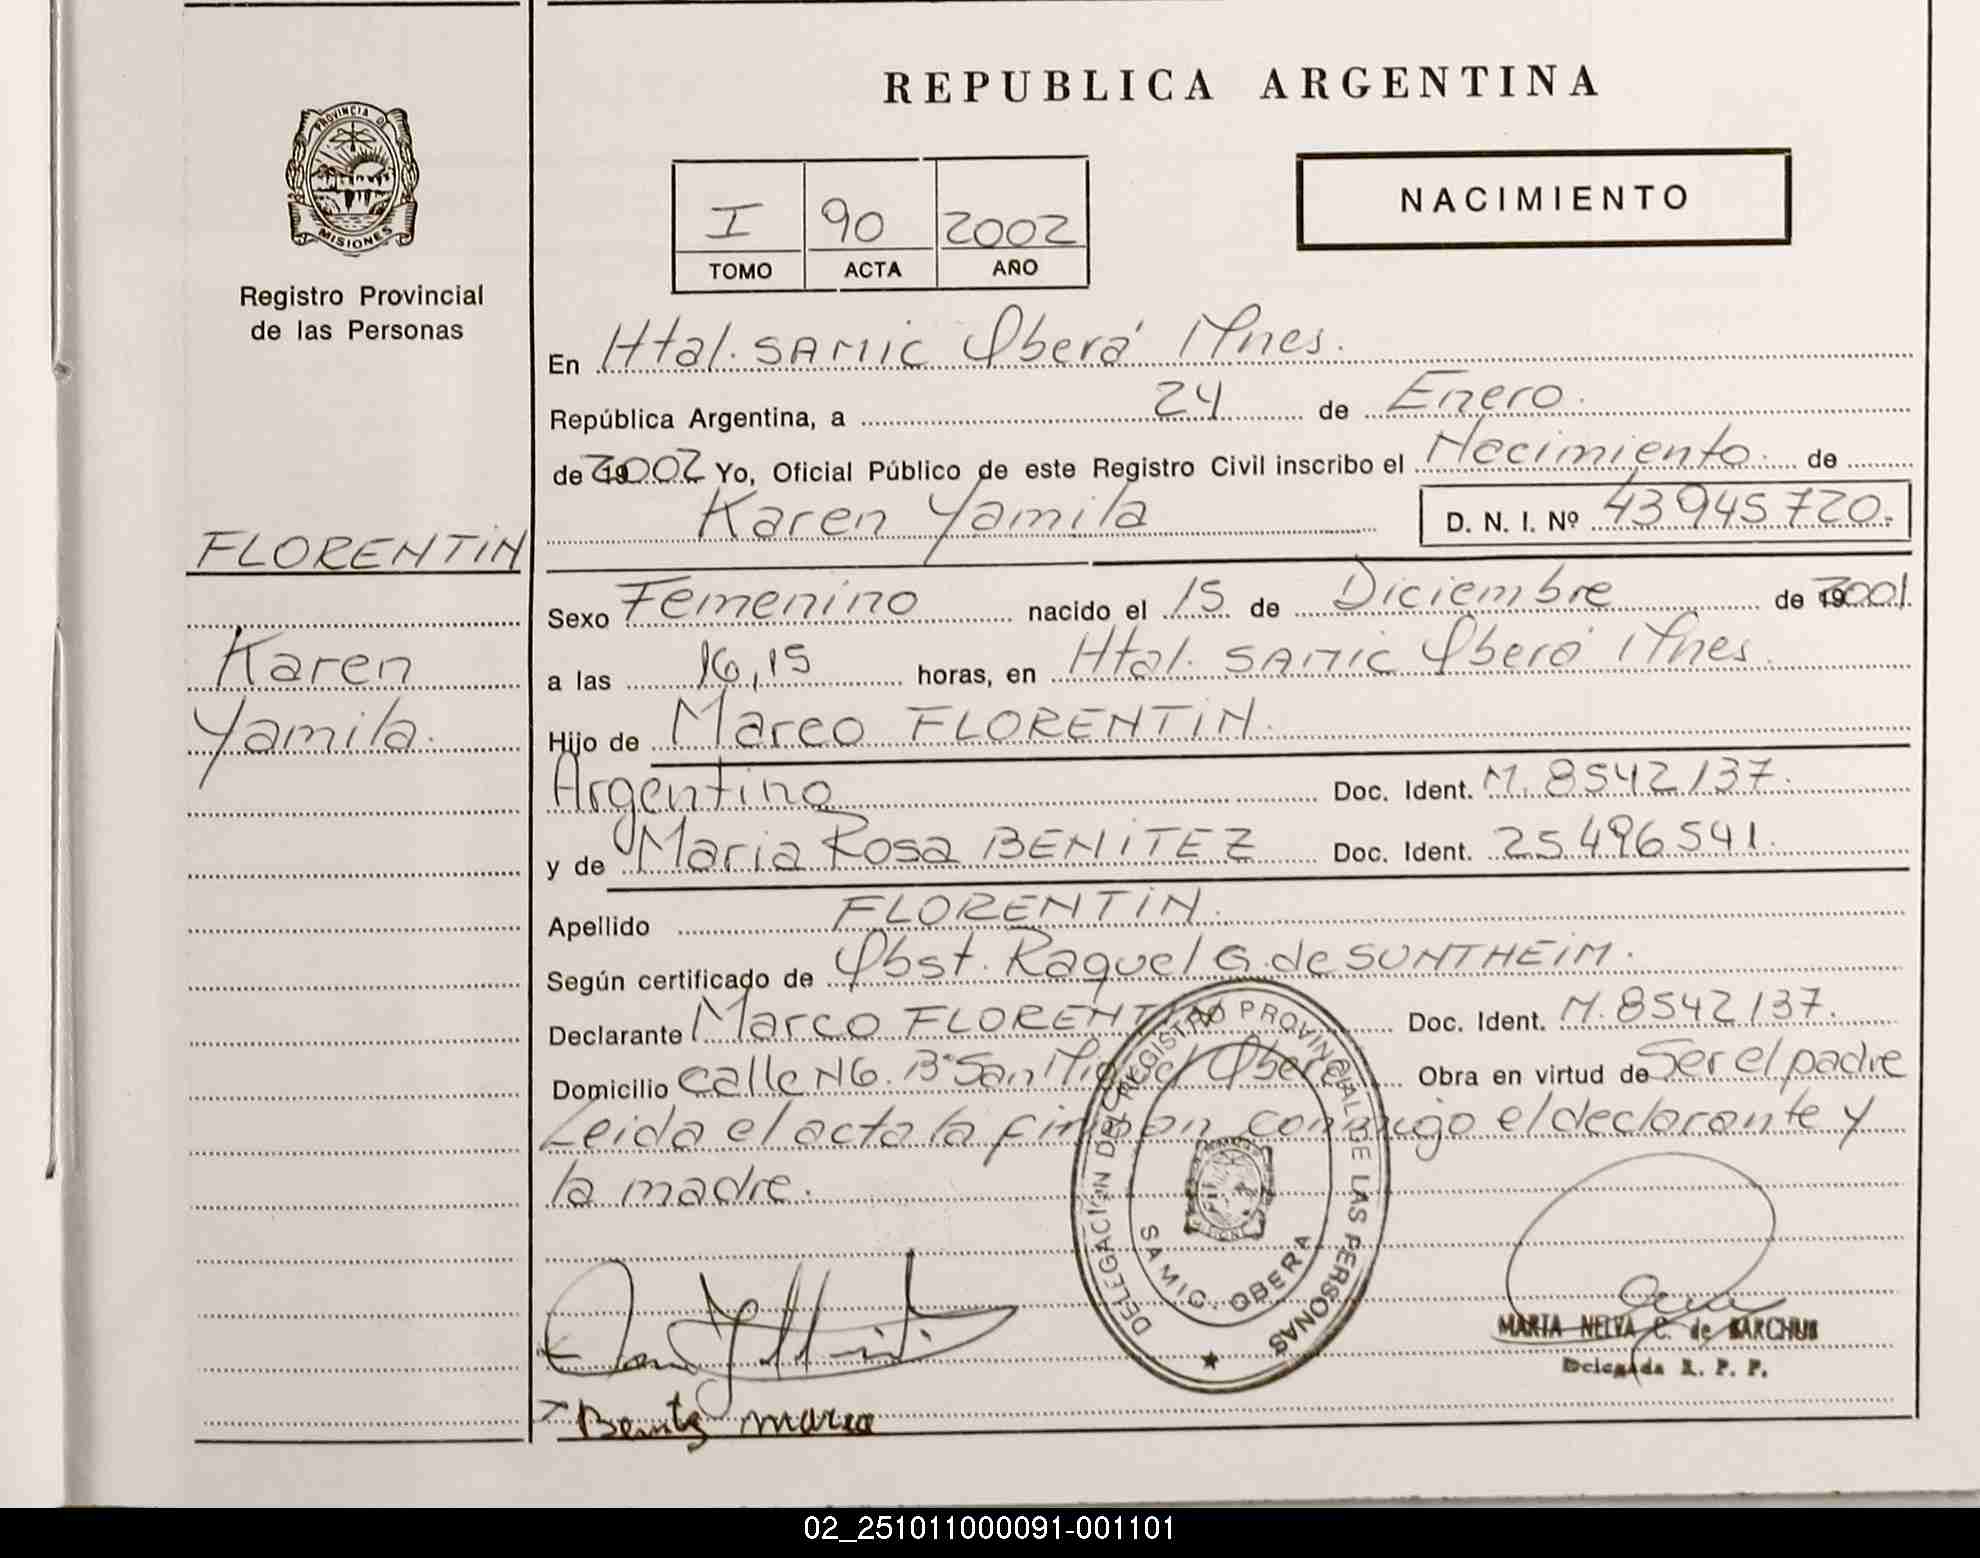 REPUBLICA ARGENTINA
PROVINCIA DE
MISIONES
Registro Provincial
de las Personas
I 90 2002
TOMO ACTA AÑO
NACIMIENTO
En Htal. SAMIC Oberá Mnes.
República Argentina, a 24 de Enero.
de 2002 Yo, Oficial Público de este Registro Civil inscribo el Nacimiento de
Karen Yamila D. N. I. Nº 43945720.
FLORENTIN
Karen
Yamila.
Sexo Femenino nacido el 15 de Diciembre de 2001.
a las 16,15 horas, en Htal. SAMIC Oberá Mnes.
Hijo de Marco FLORENTIN.
Argentino Doc. Ident. M. 8542137.
y de Maria Rosa BENITEZ Doc. Ident. 25496541.
Apellido FLORENTIN.
Según certificado de Obst. Raquel G. de SUNTHEIM.
Declarante Marco FLORENTIN Doc. Ident. M. 8542137.
Domicilio calle Nº6. Bº San Miguel Oberá Obra en virtud de Ser el padre
Leida el acta la firman conmigo el declarante y
la madre.
DELEGACIÓN DEL REGISTRO PROVINCIAL DE LAS PERSONAS
SAMIC. OBERA
MARIA NELVA C. de BARCHUK
Delegada R. P. P.
Benitez maria
02_251011000091-001101